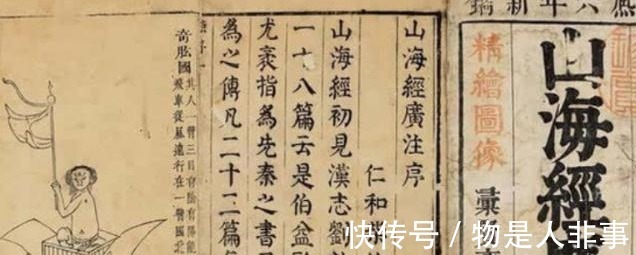 熙六年新鐫
精繪圖像
山海經
彙
山海經廣注序
仁和
山海經初見漢志劉
一十八篇云是伯益
尤袤指為先秦之書
為之傳凡二十二篇
奇肱國
其人一臂三目有陰有陽能
飛車從風遠行在一臂國北
快传号 / 物是人非事